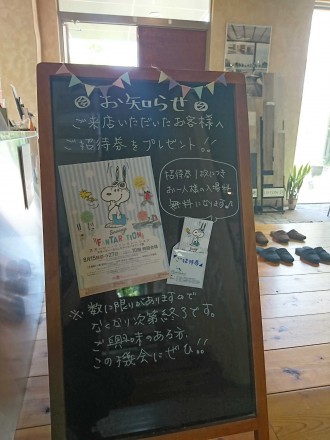 お知らせ
ご来店いただいたお客様へ
ご招待券をプレゼント!!
招待券1枚につき
お一人様の入場料
無料になります♪
FANTARATION
※数に限りがありますので
なくなり次第終了です。
ご興味のある方、
この機会にぜひ!!